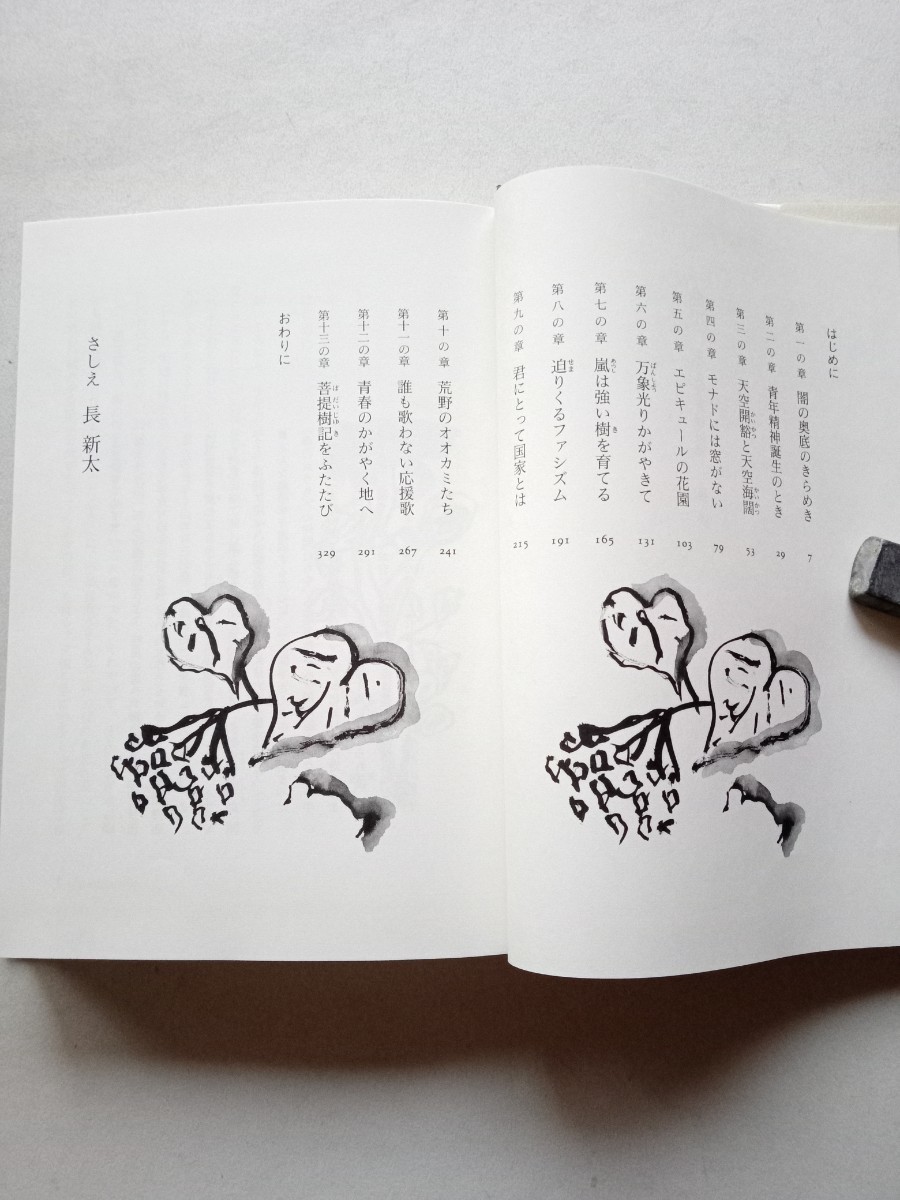 はじめに
第一の章 闇の奥底のきらめき 7
第二の章 青年精神誕生のとき 29
第三の章 天空開豁と天空海闊 53
第四の章 モナドには窓がない 79
第五の章 エピキュールの花園 103
第六の章 万象光りかがやきて 131
第七の章 嵐は強い樹を育てる 165
第八の章 迫りくるファシズム 191
第九の章 君にとって国家とは 215
第十の章 荒野のオオカミたち 241
第十一の章 誰も歌わない応援歌 267
第十二の章 青春のかがやく地へ 291
第十三の章 菩提樹記をふたたび 329
おわりに
さしえ 長 新太